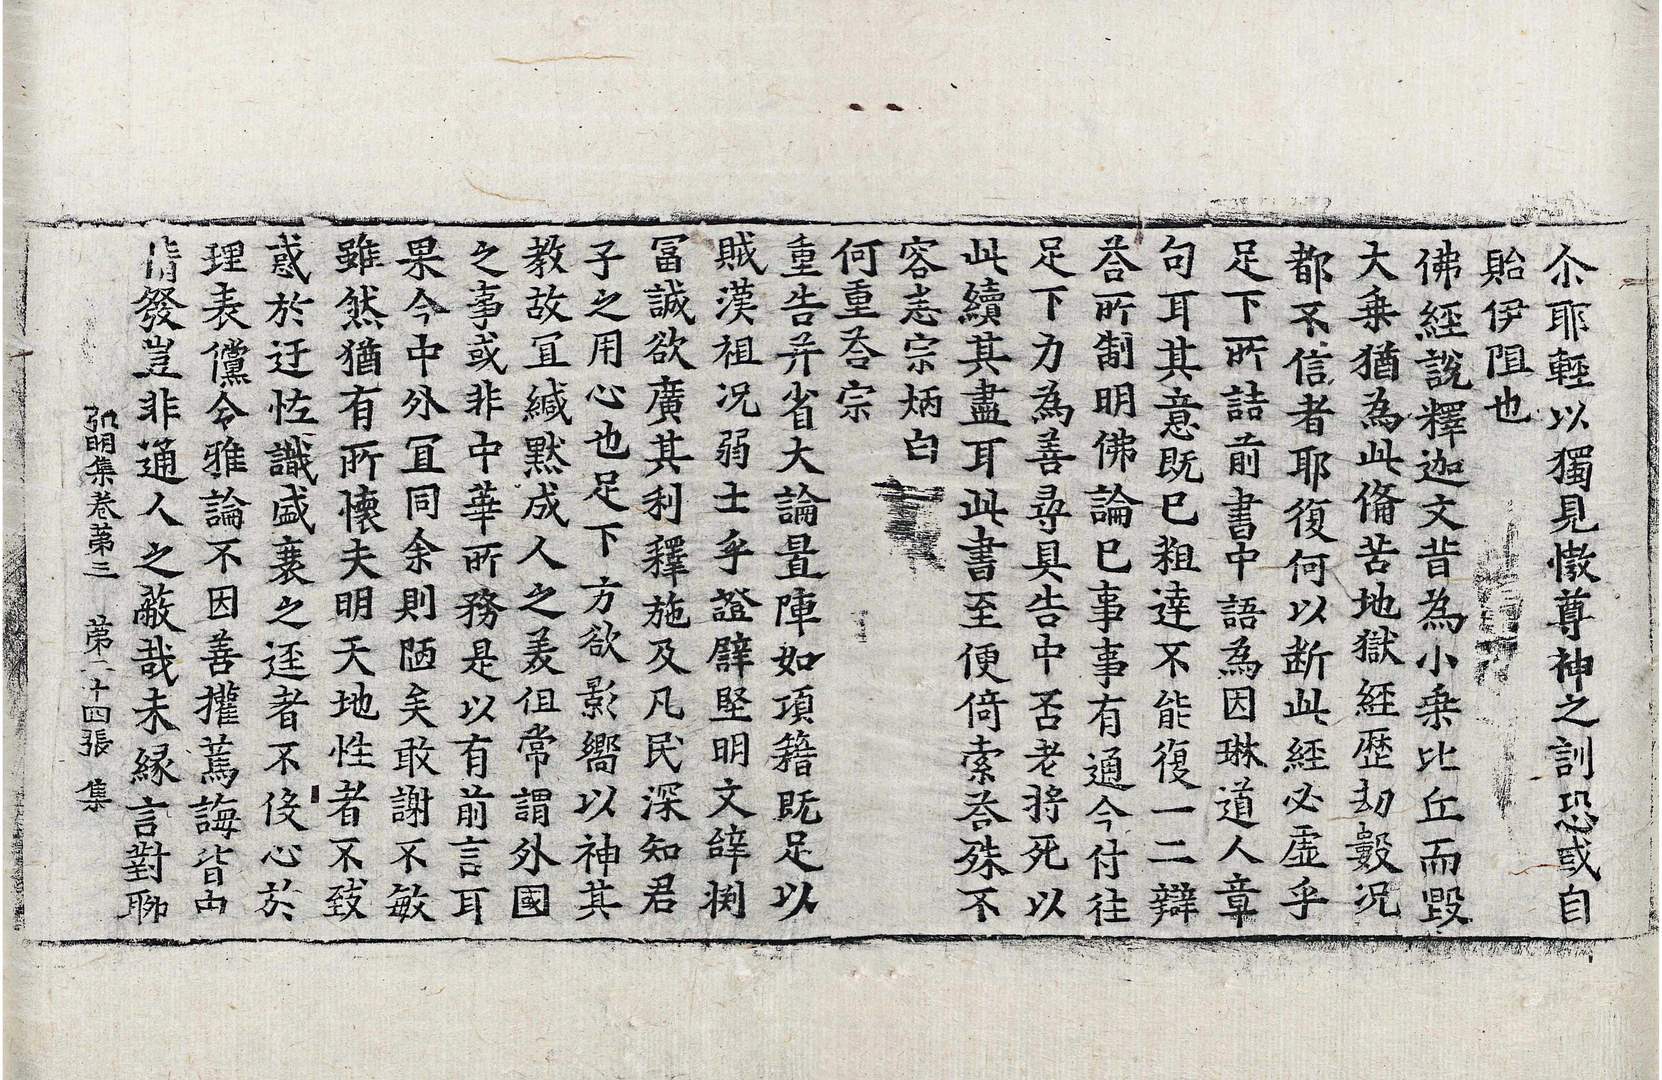 尒耶輕以獨見慠尊神之訓恐或自
貽伊阻也
佛經說釋迦文昔為小乘比丘而毀
大乘猶為此俻苦地獄經歷劫數況
都不信者耶復何以断此經必虛乎
足下所詰前書中語為因琳道人章
句耳其意既已粗達不能復一二辯
荅所制明佛論已事事有通今付往
足下力為善尋具告中否老將死以
此續其盡耳此書至便倚索荅殊不
容悉宗炳白
何重荅宗
重告并省大論置陣如項籍既足以
賊漢祖況弱士乎證譬堅明文辭渕
冨誠欲廣其利釋施及凡民深知君
子之用心也足下方欲影嚮以神其
教故冝緘黙成人之美但常謂外國
之事或非中華所務是以有前言耳
果今中外冝同余則陋矣敢謝不敏
雖然猶有所懐夫明天地性者不致
惑於迂恠識盛衰之迳者不伇心於
理表儻令雅論不因善權蔫誨皆由
情發豈非通人之蔽哉未縁言對聊
弘明集卷第三 第二十四張 集